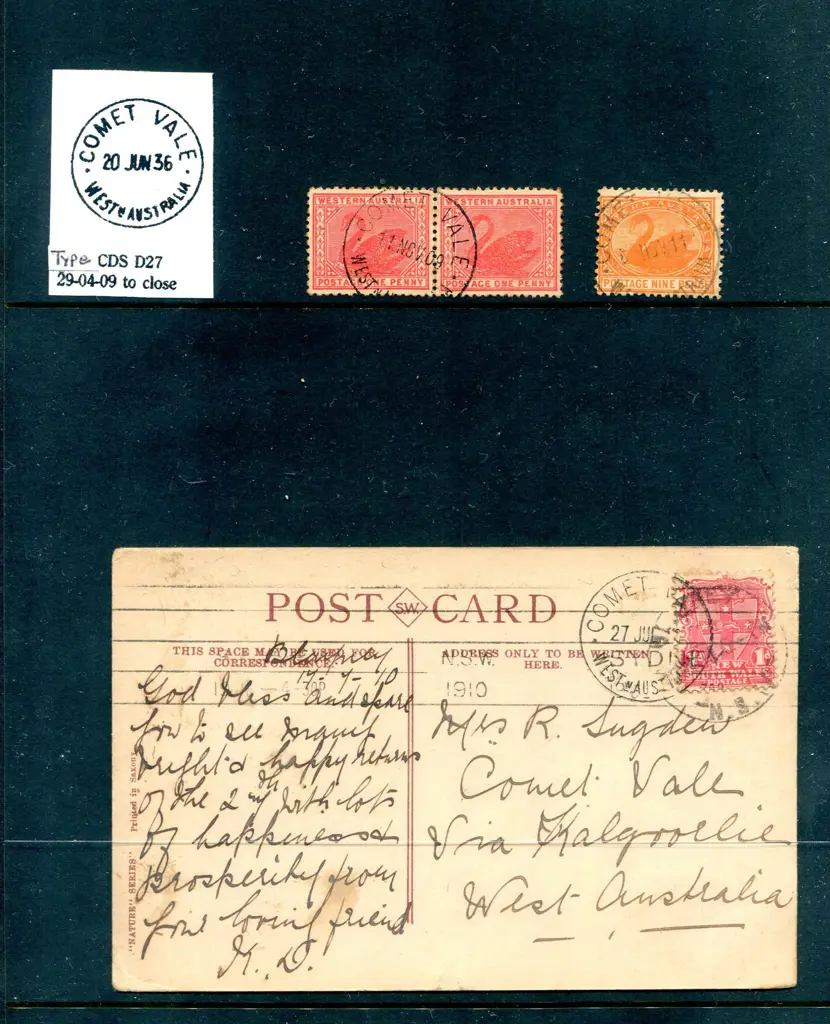 COMET VALE
20 JUN 36
WESTN AUSTRALIA
Type CDS D27
29-04-09 to close
WESTERN AUSTRALIA
POSTAGE ONE PENNY
WESTERN AUSTRALIA
POSTAGE ONE PENNY
COMET VALE
11 NOV 09
WESTN
POSTAGE NINE
NOV 11
POST S.W. CARD
THIS SPACE MAY BE USED FOR
CORRESPONDENCE.
ADDRESS ONLY TO BE WRITTEN
HERE.
N.S.W.
1910
COMET
27 JU
WESTN AUS
SYDNE
NEW
POSTAGE
N.S.
10
God bless and spare
you to see many
bright & happy returns
of the 2nd with lots
of happiness &
prosperity from
your loving friend
K. D.
Mrs R. Sugden
Comet Vale
Via Kalgoorlie
West Australia
"NATURE" SERIES Printed in Saxony